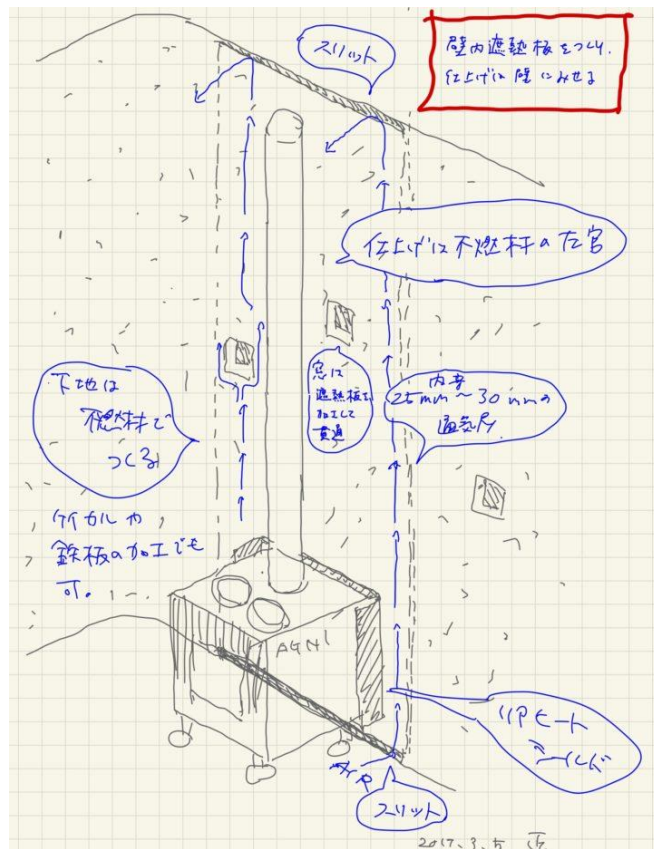 スリット
壁内遮熱板をつくり、
仕上げは壁にみせる
仕上げは不燃材の左官
下地は
不燃材で
つくる
ケイカルや
鉄板の加工でも
可。
窓は
遮熱板を
加工して
貫通
内寸
25mm〜30mmの
通気層
AGNI
リアヒート
シールド
スリット
2017.3.5